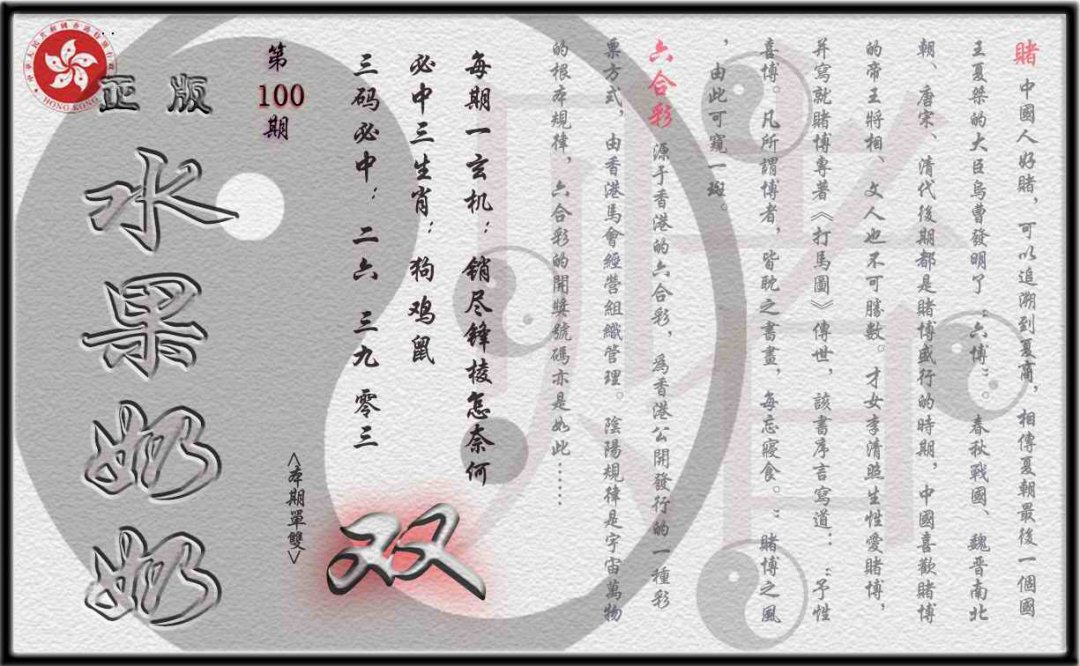 賭 中國人好賭，可以追溯到夏商，相傳夏朝最後一個國
王夏桀的大臣烏曹發明了“六博”。春秋戰國、魏晉南北
朝、唐宋、清代後期都是賭博盛行的時期，中國喜歡賭博
的帝王將相、文人也不可勝數。才女李清照生性愛賭博，
并寫就賭博專著《打馬圖》傳世，該書序言寫道：“予性
喜博。凡所謂博者，皆耽之書畫，每忘寢食。”賭博之風
，由此可窺一斑。
六合彩 源于香港的六合彩，爲香港公開發行的一種彩
票方式，由香港馬會經營組織管理。陰陽規律是宇宙萬物
的根本規律，六合彩的開獎號碼亦是如此……
每期一玄机：销尽锋棱怎奈何
必中三生肖：狗鸡鼠
三码必中：二六 三九 零三
双
<本期單雙>
第100期
正版
水果奶奶
HONG KONG